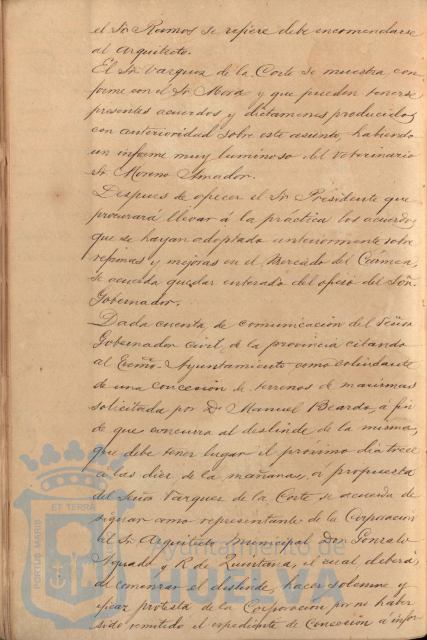 el Sr. Ramos se refiere debe encomendarse
al Arquitecto.
El Sr. Vazquez de la Corte se muestra con
forme con el Sr. Mora y que pueden tenerse
presentes acuerdos y dictamenes producidos
con anterioridad sobre este asunto, habiendo
un informe muy luminoso del Veterinario
Sr. Moreno Amador.
Despues de ofrecer el Sr. Presidente que
procurará llevar á la práctica los acuerdos
que se hayan adoptado anteriormente sobre
reformas y mejoras en el Mercado del Carmen
se acuerda quedar enterado del oficio del Señor
Gobernador.
Dada cuenta de comunicacion del Señor
Gobernador Civil de la provincia citando
al Excmo. Ayuntamiento como colindante
de una concesion de terrenos de marismas
solicitada por Dn. Manuel Beardo, á fin
de que concurra al deslinde de la misma,
que debe tener lugar el próximo dia trece
a las diez de la mañana, á propuesta
del Señor Vazquez de la Corte se acuerda de
signar como representante de la Corporacion
al Sr. Arquitecto Municipal Don Gonzalo
Aguado y R. de Quintana, el cual deberá,
al comenzar el deslinde, hacer solemne y
eficaz protesta de la Corporacion por no haber
sido remitido el expediente de Concesion a infor
PORTUS MARIS ET TERRA
Ayuntamiento de
HUELVA